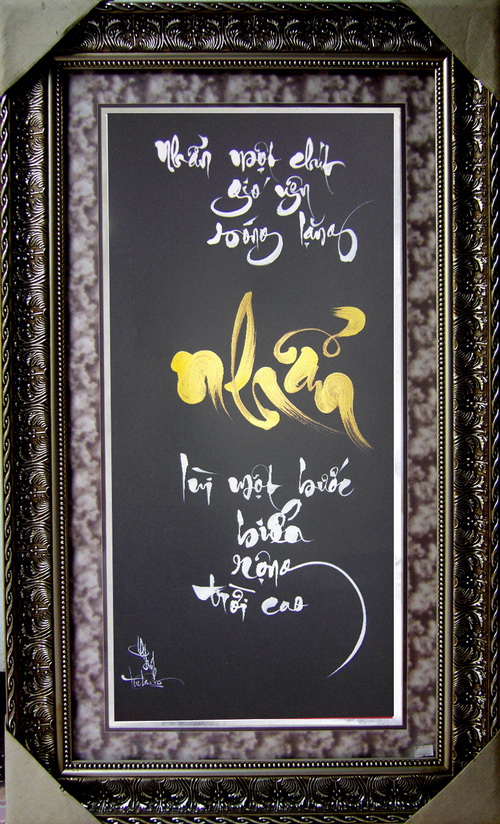 Nhẫn một chút
gió yên
sóng lặng
Nhẫn
lùi một bước
biển
rộng
trời cao